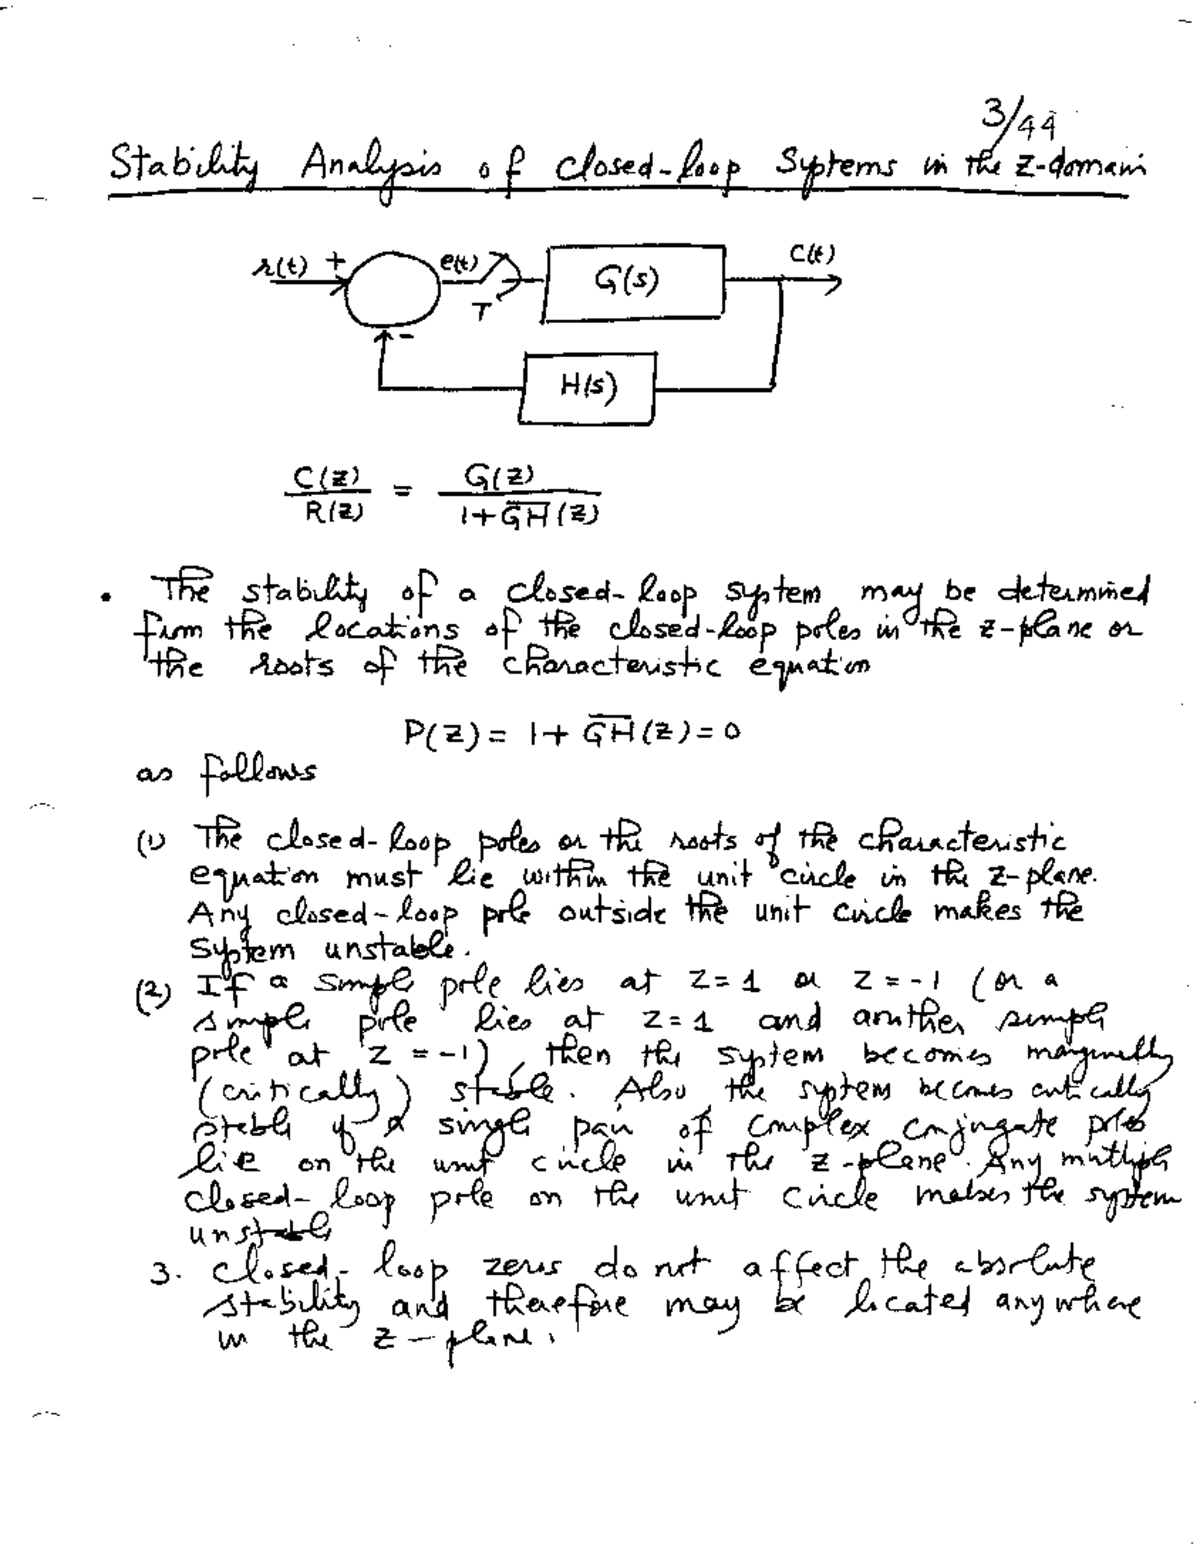 3/44
Stability Analysis of closed-loop Systems in the z-domain
r(t) + e(t) T G(s) C(t)
-
H(s)
C(z)/R(z) = G(z)/(1+G̅H̅(z))
• The stability of a closed-loop system may be determined
from the locations of the closed-loop poles in the z-plane or
the roots of the characteristic equation
P(z) = 1 + G̅H̅(z) = 0
as follows
(1) The closed-loop poles or the roots of the characteristic
equation must lie within the unit circle in the z-plane.
Any closed-loop pole outside the unit circle makes the
system unstable.
(2) If a simple pole lies at z = 1 or z = -1 (or a
simple pole lies at z = 1 and another simple
pole at z = -1), then the system becomes marginally
(critically) stable. Also, the system becomes critically
stable if a single pair of complex conjugate poles
lie on the unit circle in the z-plane. Any multiple
closed-loop pole on the unit circle makes the system
unstable
3. Closed-loop zeros do not affect the absolute
stability and therefore may be located anywhere
in the z-plane.